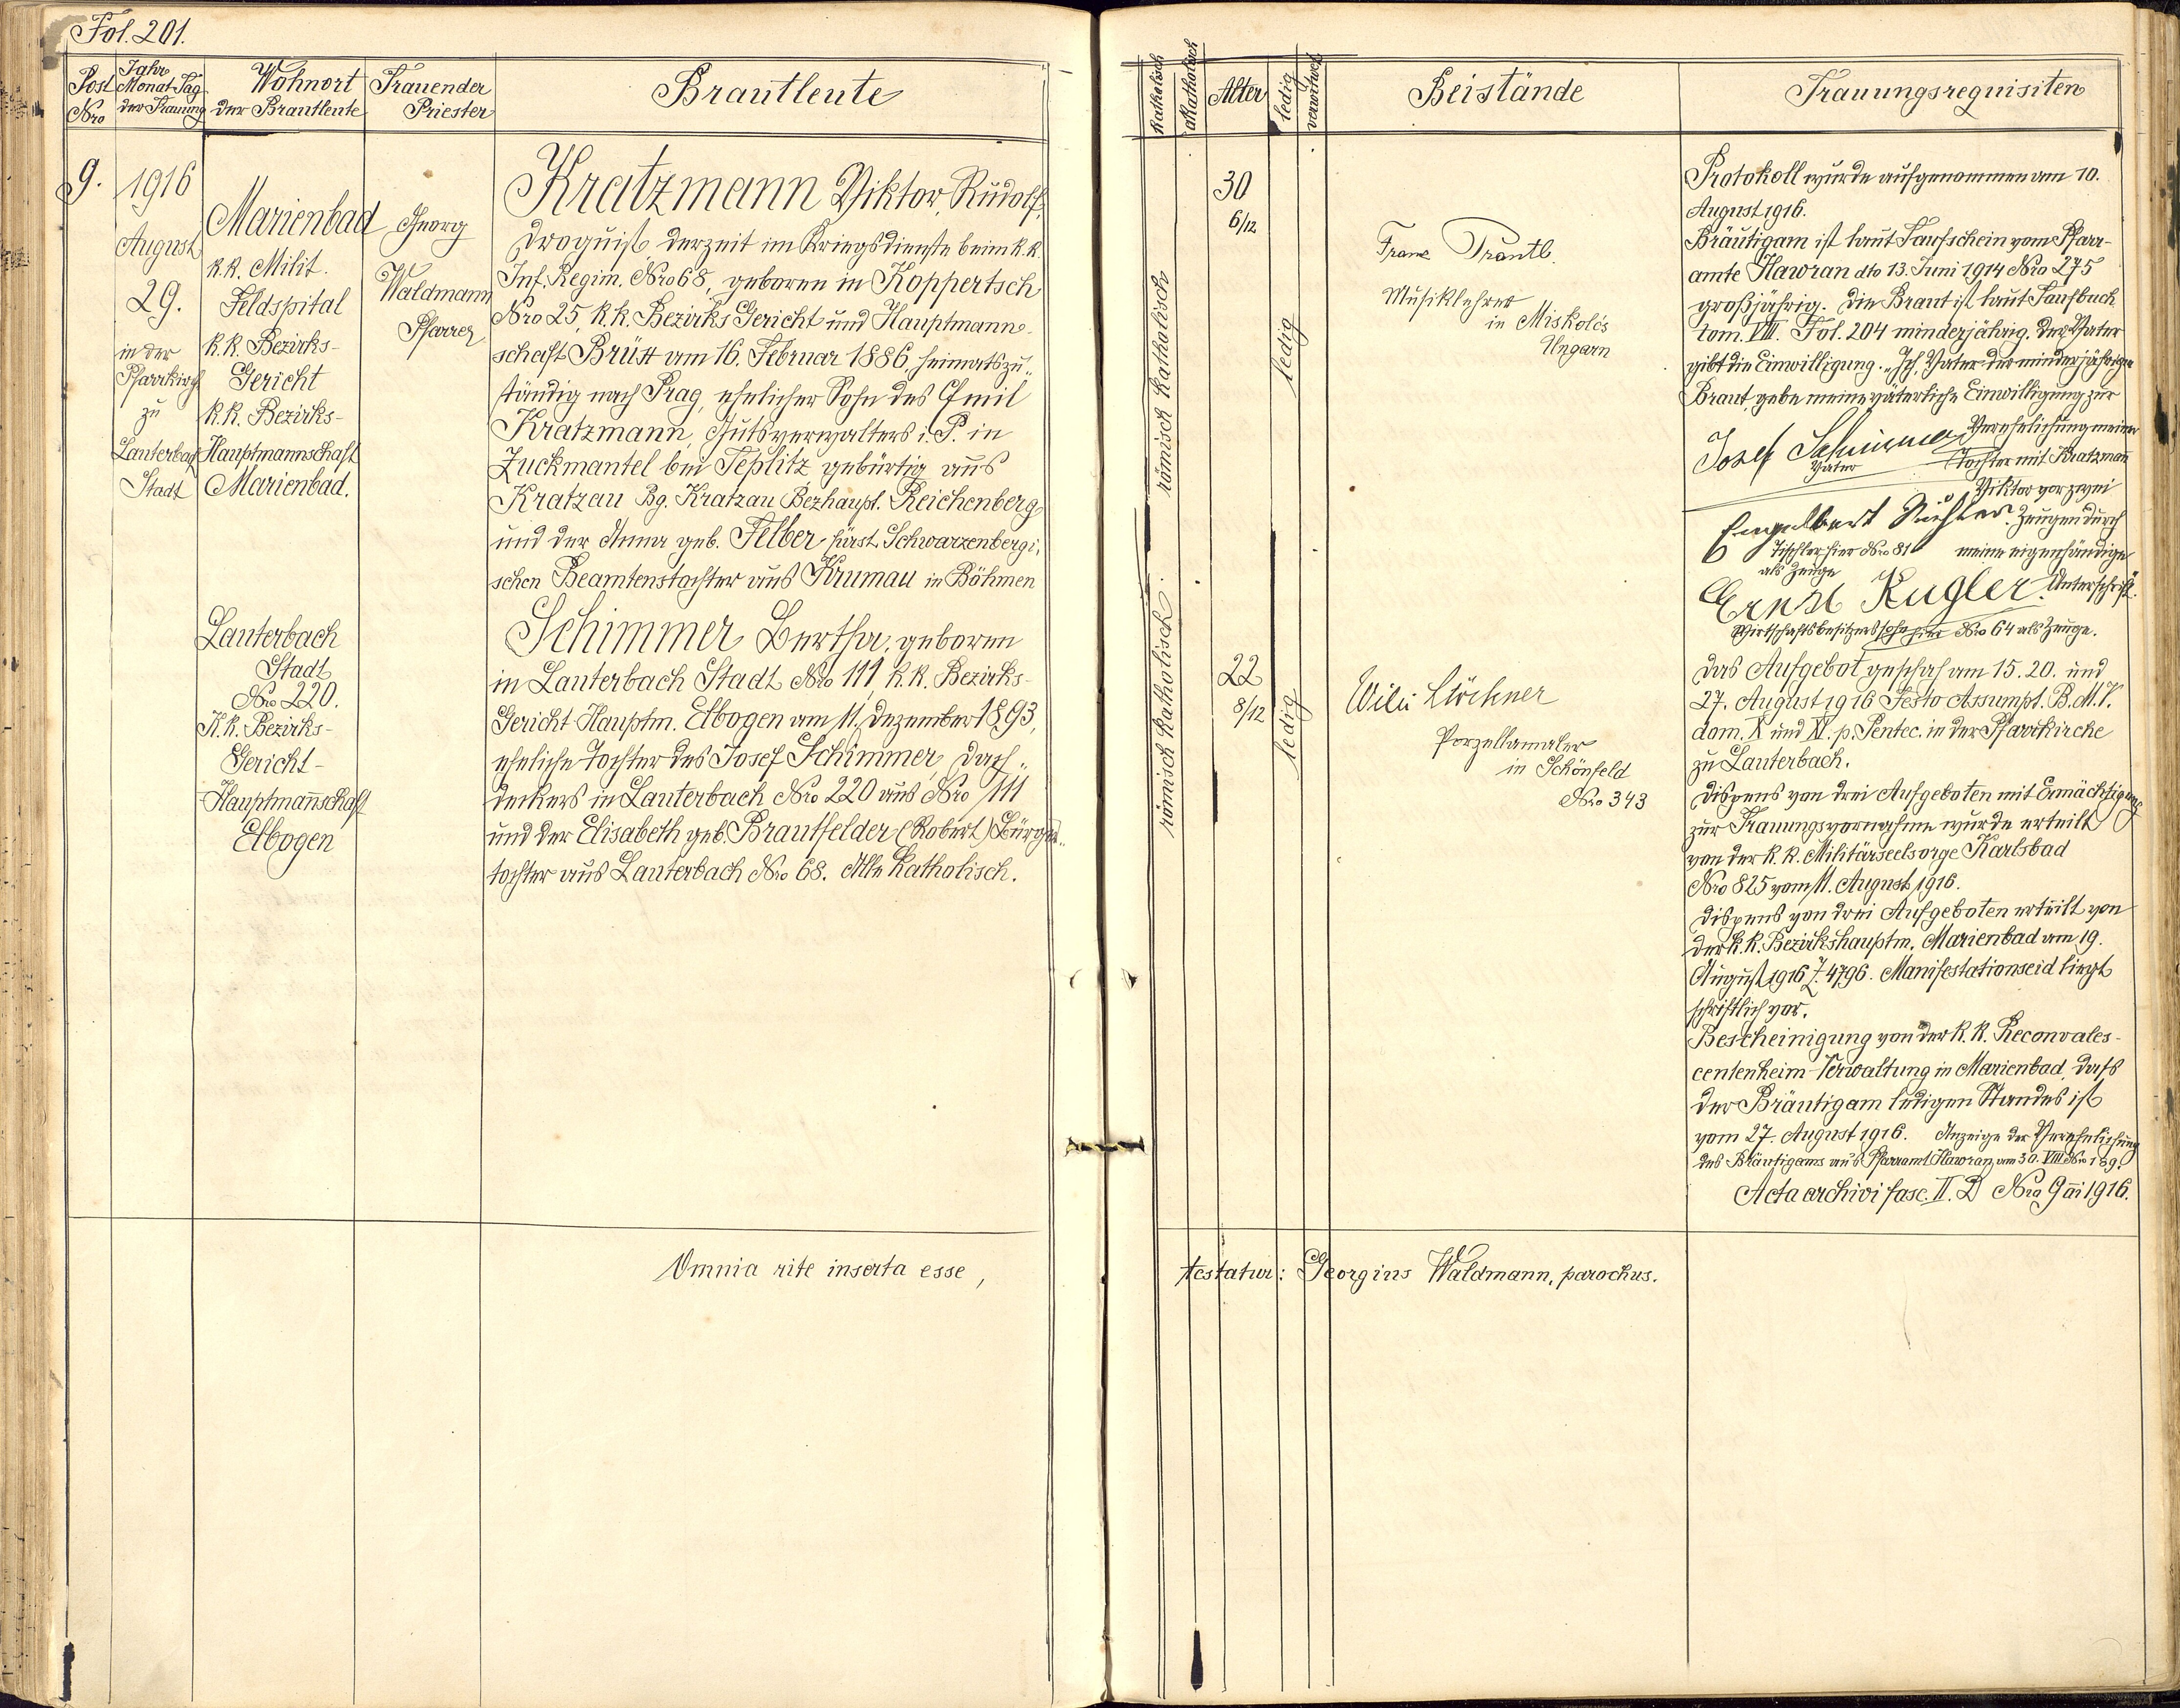 Fol. 201.
Post Nro
Jahr Monat Tag der Trauung
Wohnort der Brautleute
Trauender Priester
Brautleute
9.
1916
August
29.
in der
Pfarrkirche
zu
Lauterbach
Stadt
Marienbad
k.k. Milit.
Feldspital
k.k. Bezirks-
Gericht
k.k. Bezirks-
Hauptmannschaft
Marienbad.
Georg
Waldmann
Pfarrer
Kratzmann Viktor, Rudolf,
Droguist derzeit im Kriegsdienste beim k.k.
Inf. Regim. Nro 68, geboren in Koppertsch
Nro 25, k.k. Bezirks Gericht und Hauptmann-
schaft Brüx am 16. Februar 1886, heimatszu-
ständig nach Prag, ehelicher Sohn des Emil
Kratzmann, Gutsverwalters i. P. in
Zuckmantel bei Teplitz gebürtig aus
Kratzau Bg. Kratzau Bezhaupt. Reichenberg
und der Anna geb. Felber fürst. Schwarzenbergi-
schen Beamtenstochter aus Krumau in Böhmen
Lauterbach
Stadt
Nro 220.
K.k. Bezirks-
Gericht-
Hauptmannschaft
Elbogen
Schimmer Bertha, geboren
in Lauterbach Stadt Nro 111 k.k. Bezirks-
Gericht Hauptm. Elbogen am 11. Dezember 1893,
eheliche Tochter des Josef Schimmer, Dach-
deckers in Lauterbach Nro 220 aus Nro 111
und der Elisabeth geb. Brautfelder (Robert) Bürgers-
tochter aus Lauterbach Nro 68. Alle katholisch.
Omnia rite inserta esse,
katholisch
akatholisch
Alter
ledig
verwitwet
Beistände
Trauungsrequisiten
römisch katholisch
30
6/12
ledig
Franz Trantl.
Musiklehrer
in Miskolcs
Ungarn
römisch katholisch
22
8/12
ledig
Wili Löchner
Porzellanmaler
in Schönfeld
Nro 343
Protokoll wurde aufgenommen am 10.
August 1916.
Bräutigam ist laut Taufschein vom Pfarr-
amte Hawran dto 13. Juni 1914 Nro 275
großjährig. Die Braut ist laut Taufbuch
tom. VIII. Fol. 204 minderjährig. Der Vater
gibt die Einwilligung. „Ich, Vater der minderjährigen
Braut, gebe meine väterliche Einwilligung zur
Verehelichung meiner
Josef Schimmer
Vater
Tochter mit Kratzmann
Viktor vor zwei
Engelbert
Zeugen durch
Tischler hier Nro 81
meine eigenhändige
als Zeuge
Ernst Kugler
Unterschrift."
Wirtschaftsbesitzerssohn hier Nro 64 als Zeuge.
Das Aufgebot geschah am 15. 20. und
27. August 1916 Festo Assumpt. B.M.V.
dom. X und XI. p. Pentec. in der Pfarrkirche
zu Lauterbach.
Dispens von drei Aufgeboten mit Ermächtigung
zur Trauungsvornahme wurde erteilt
von der k.k. Militärseelsorge Karlsbad
Nro 825 vom 11. August 1916.
Dispens von drei Aufgeboten erteilt von
der k.k. Bezirkshauptm. Marienbad am 19.
August 1916 Z. 4796. Manifestationseid liegt
schriftlich vor.
Bescheinigung von der k.k. Reconvales-
centenheim-Verwaltung in Marienbad, dass
der Bräutigam ledigen Standes ist
vom 27. August 1916. Anzeige der Verehelichung
des Bräutigams ans Pfarramt Hawran am 30. VIII Nro 189.
Acta archivi fasc. II. D Nro 9 ai 1916.
testatur: Georgius Waldmann, parochus.